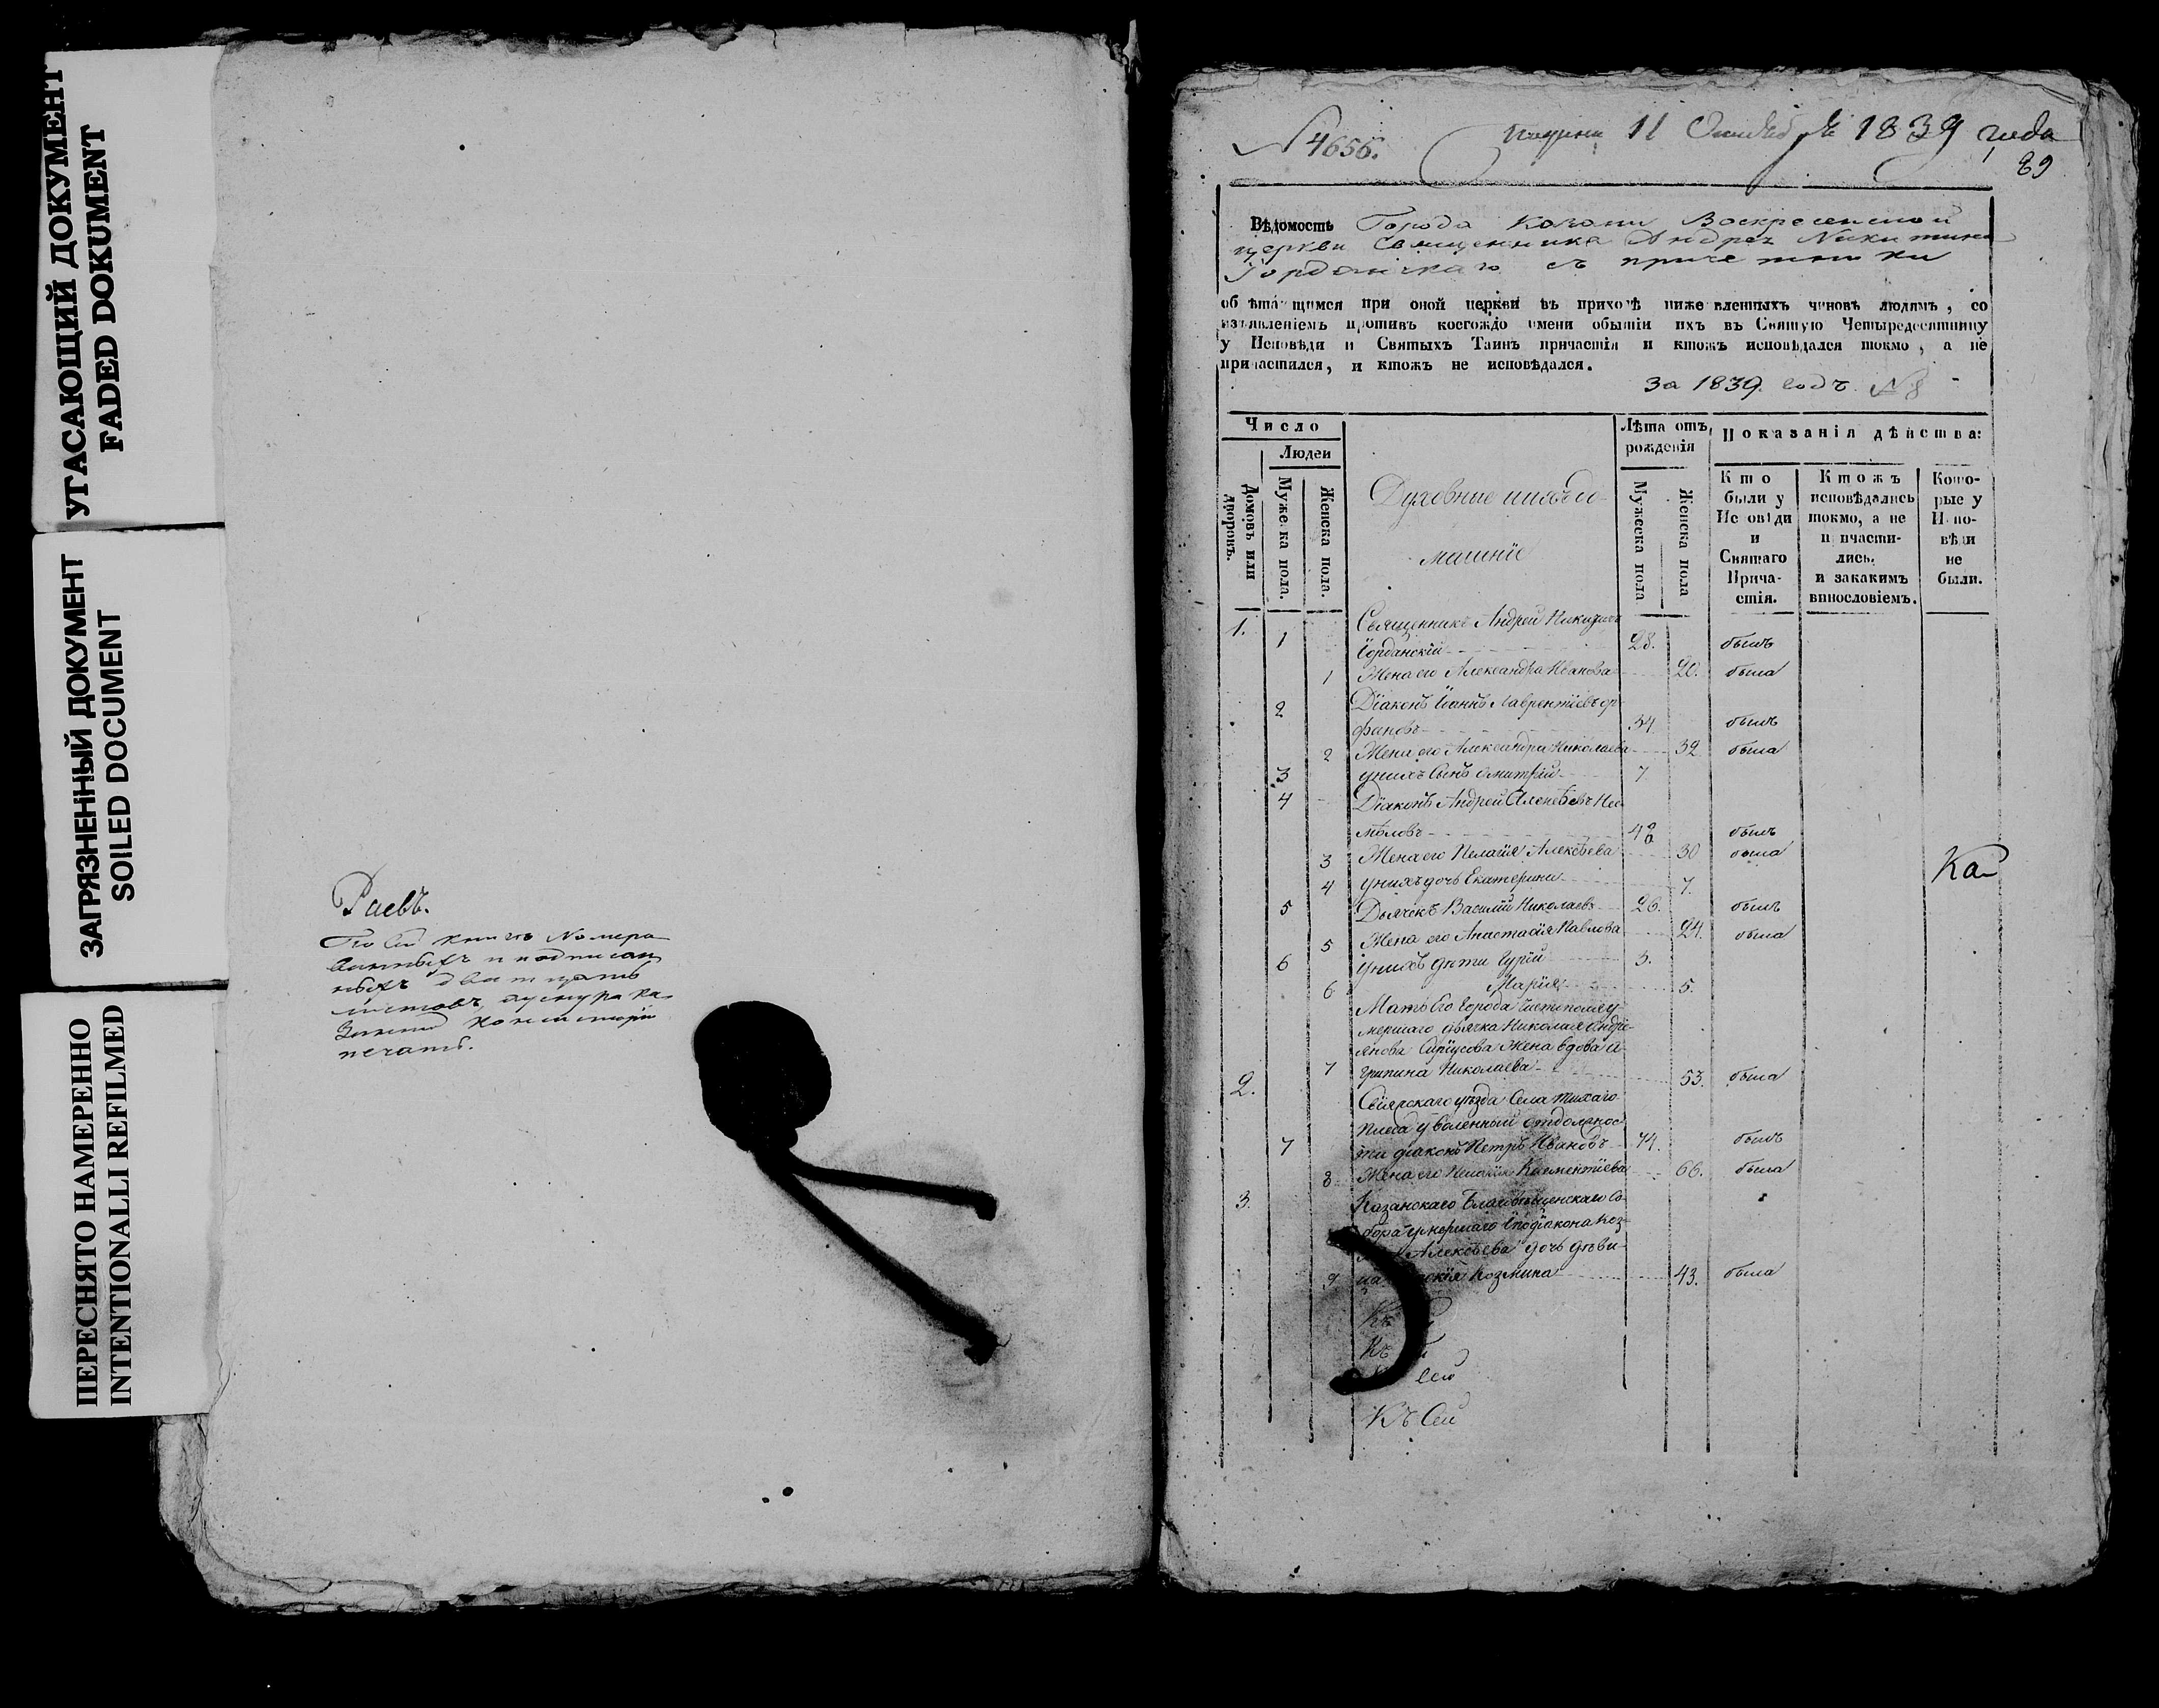 УГАСАЮЩИЙ ДОКУМЕНТ
FADED DOKUMENT
ЗАГРЯЗНЕННЫЙ ДОКУМЕНТ
SOILED DOCUMENT
ПЕРЕСНЯТО НАМЕРЕННО
INTENTIONALLI REFILMED
Раевъ.
По сей книгѣ Номеро
ванныхъ и подписан
ныхъ дватцать
листовъ шнура ка
печать.
№ 4656.
11 Октября 1839 года
89
Вѣдомость Города Казани Воскресенской
церкви Священника Андрея Никитина
Іорданскаго съ причетники
обрѣтающимся при оной церкви въ приходѣ нижеявленныхъ чиновъ людямъ, со
изъявленіемъ противъ коегождо имени бытіи ихъ въ Святую Четыредесятницу
у Исповѣди и Святыхъ Таинъ причастія и ктожъ исповѣдался токмо, а не
причастился, и ктожъ не исповѣдался.
за 1839. годъ № 8
Число
Людей
Домовъ или дворовъ.
Мужеска пола.
Женска пола.
Духовные и ихъ до-
машніе
Лѣта отъ
рожденія
Мужеска пола
Женска пола
Показанія дѣйства:
Кто
были у
Исповѣди
и
Святаго
Прича-
стія.
Ктожъ
исповѣдались
токмо, а не
причасти-
лись.
и закакимъ
винословіемъ.
Кото-
рые у
Испо-
вѣди
не
были.
1. 1 Священникъ Андрей Никитинъ
Іорданскій 28. былъ
1 Жена его Александра Иванова 20. была
2 Діаконъ Іоаннъ Лаврентіевъ
34 былъ
2 Жена его Александра Николаева 32 была
3 у нихъ сынъ Димитрій 7
4 Діаконъ Андрей Алексѣевъ
48 былъ
3 Жена его Пелагія Алексѣева 30 была
Ка
4 у нихъ дочь Екатерина 7.
5 Дьячекъ Василій Николаевъ 26. былъ
5 Жена его Анастасія Павлова 24. была
6 у нихъ дѣти Гурій 3.
6 Марія 5.
Мать Его города Чистополя у-
мершаго дьячка Николая Андре-
янова жена вдова А-
7 грипина Николаева 53. была
2. Свіяжскаго уѣзда Села Тихаго
Плеса уволенный отдолжнос-
7 ти діаконъ Петръ Ивановъ 74. былъ
8 Жена его Пелагія Климентіева 66. была
3. Казанскаго Благовѣщенскаго Со-
бора умершаго Ѵподіакона Коз-
Алексѣева дочь дѣви-
9 ца Козмина 43. была
Къ
Къ
сей
Къ сей